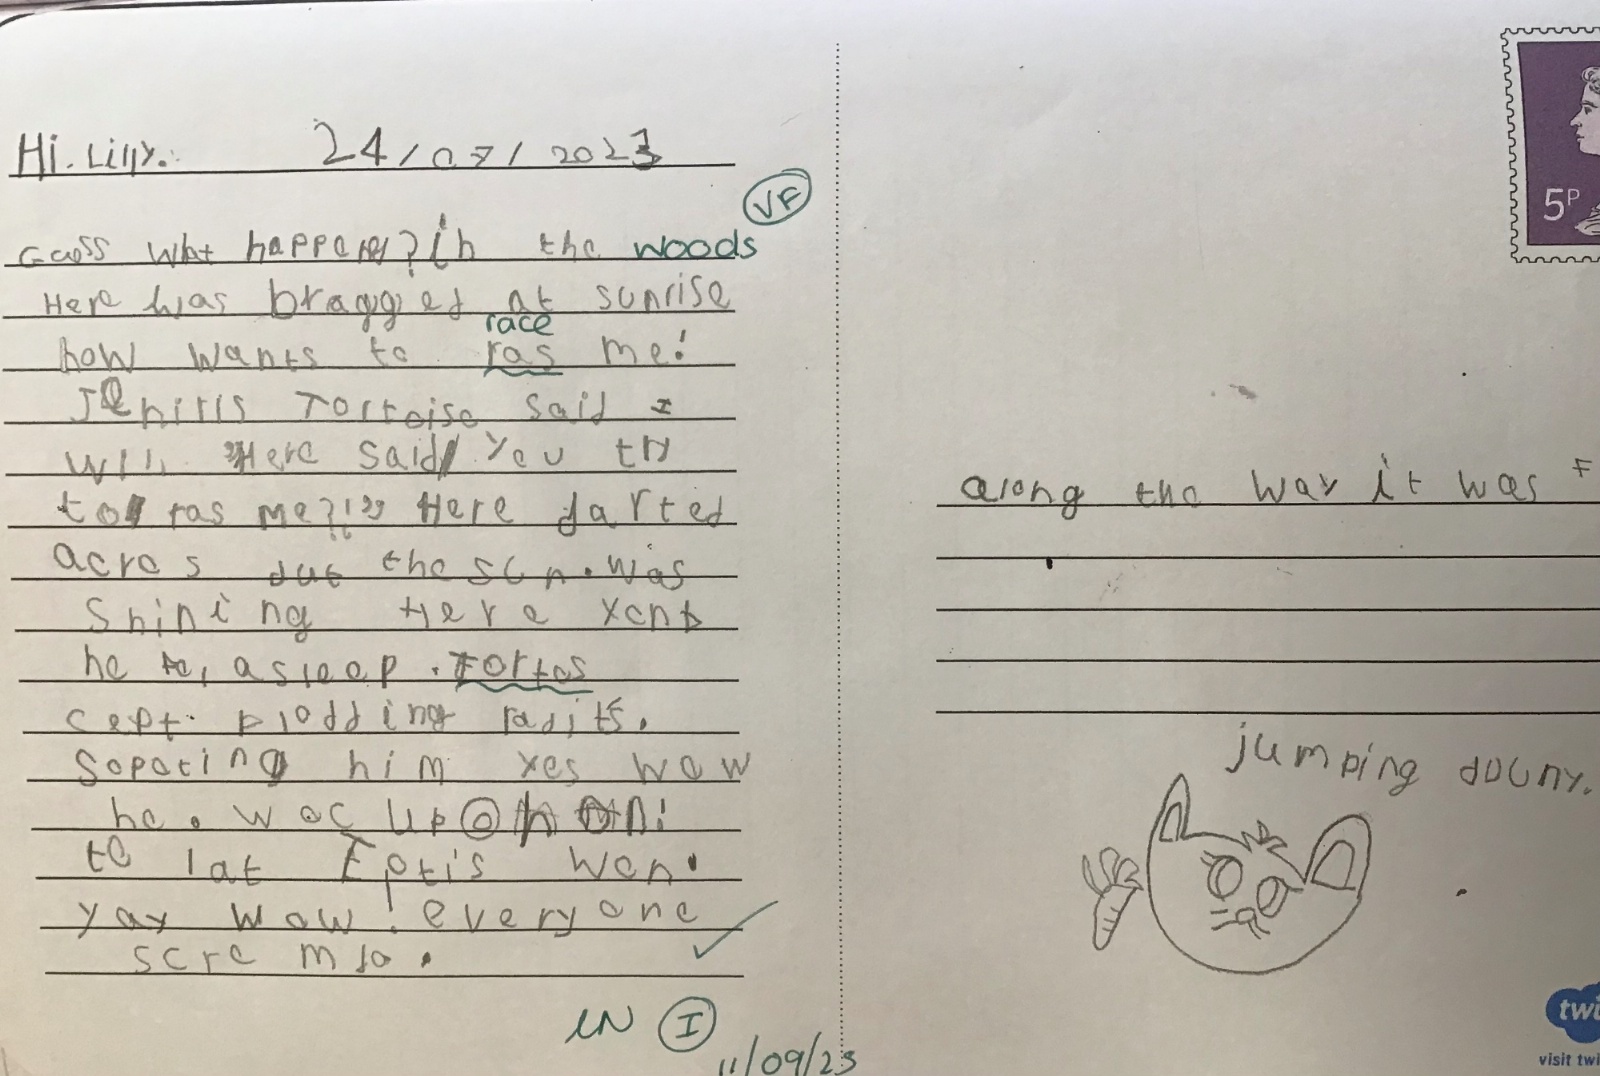 Hi. Lilly. 24/07/2023
VF
Guess what happened? in the woods
Here was bragged at sunrise
race
how wants to ras me!
Tortoise said I
will Here said You try
to ras me?!" Here darted
acros but the sun. was
Shining Here
he asleep. Tortos
cept. plodding rabits.
Sopoting him yes wow
he. woc up oh no!
to lat won.
yay wow! everyone
scre mda.
LN I
11/09/23
5P
along the way it was F
jumping bouny.
twi
visit twi